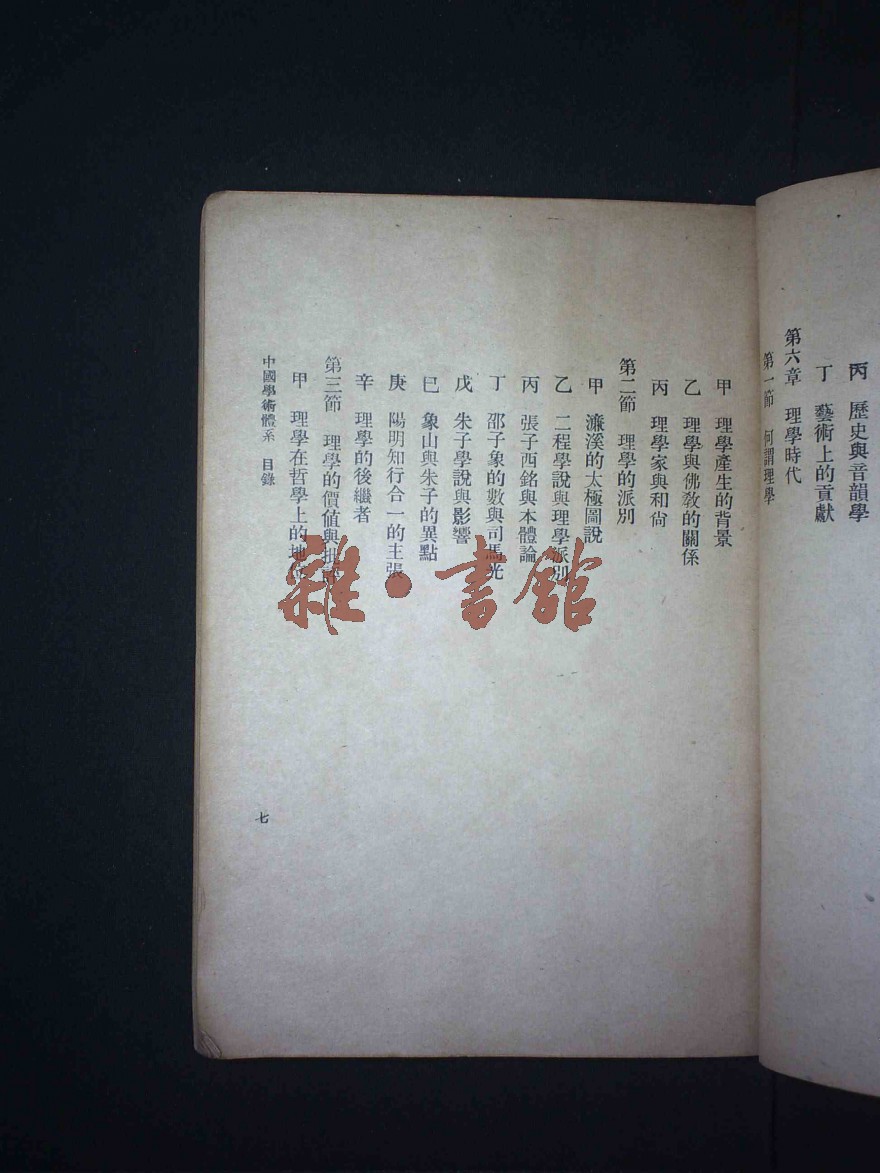 丙 歷史與音韻學
丁 藝術上的貢獻
第六章 理學時代
第一節 何謂理學
甲 理學產生的背景
乙 理學與佛教的關係
丙 理學家與和尚
第二節 理學的派別
甲 濂溪的太極圖說
乙 二程學說與理學派別
丙 張子西銘與本體論
丁 邵子象的數與司馬光
戊 朱子學說與影響
巳 象山與朱子的異點
庚 陽明知行合一的主張
辛 理學的後繼者
第三節 理學的價值與批評
甲 理學在哲學上的地位
中國學術體系 目錄
七
雜·書館